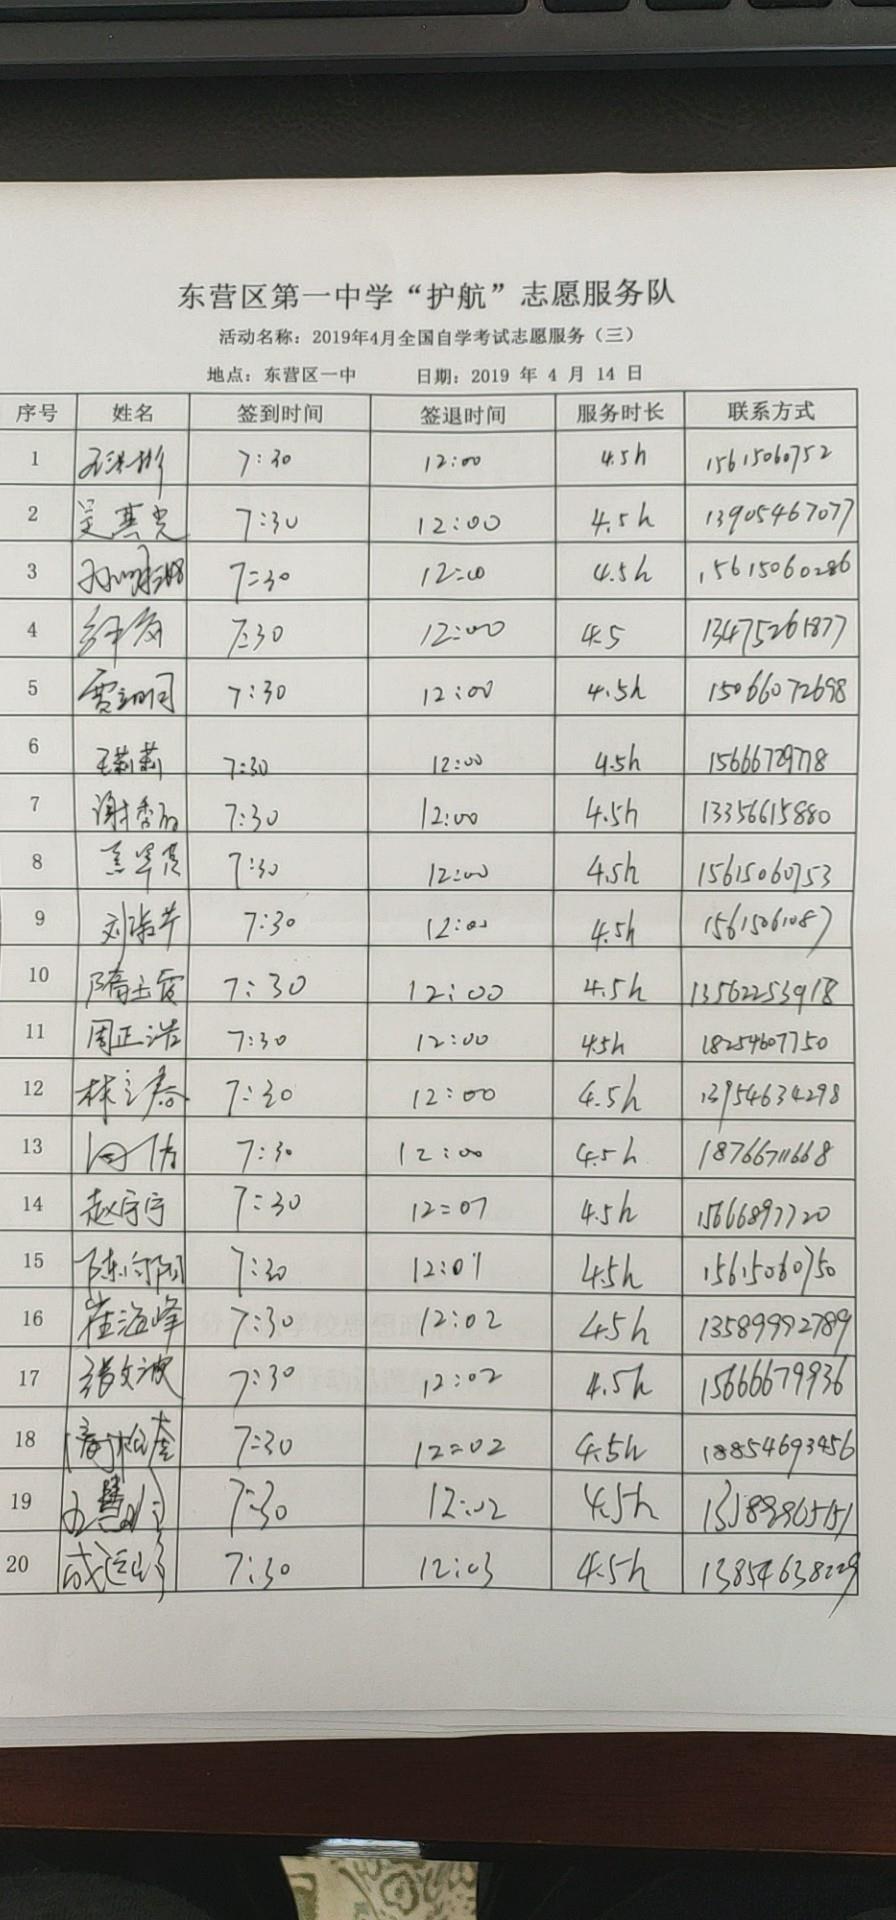 东营区第一中学“护航”志愿服务队
活动名称：2019年4月全国自学考试志愿服务（三）
地点：东营区一中 日期：2019 年 4 月 14 日
序号 姓名 签到时间 签退时间 服务时长 联系方式
1 7:30 12:00 4.5h 15615060752
2 吴其光 7:30 12:00 4.5h 13905467077
3 7:30 12:00 4.5h 15615060286
4 7:30 12:00 4.5 13475261877
5 7:30 12:00 4.5h 15066072698
6 王莉莉 7:30 12:00 4.5h 15666729718
7 7:30 12:00 4.5h 13356615880
8 7:30 12:00 4.5h 15615060753
9 7:30 12:00 4.5h 15615061087
10 隋玉霞 7:30 12:00 4.5h 13562253918
11 周正浩 7:30 12:00 4.5h 18254607750
12 林立春 7:30 12:00 4.5h 13954634298
13 7:30 12:00 4.5h 18766711668
14 赵宇宇 7:30 12:01 4.5h 15666897720
15 7:30 12:01 4.5h 15615060750
16 崔海峰 7:30 12:02 4.5h 13589992789
17 张文波 7:30 12:02 4.5h 15666679936
18 7:30 12:02 4.5h 18854693456
19 7:30 12:02 4.5h
20 7:30 12:03 4.5h 13854638229